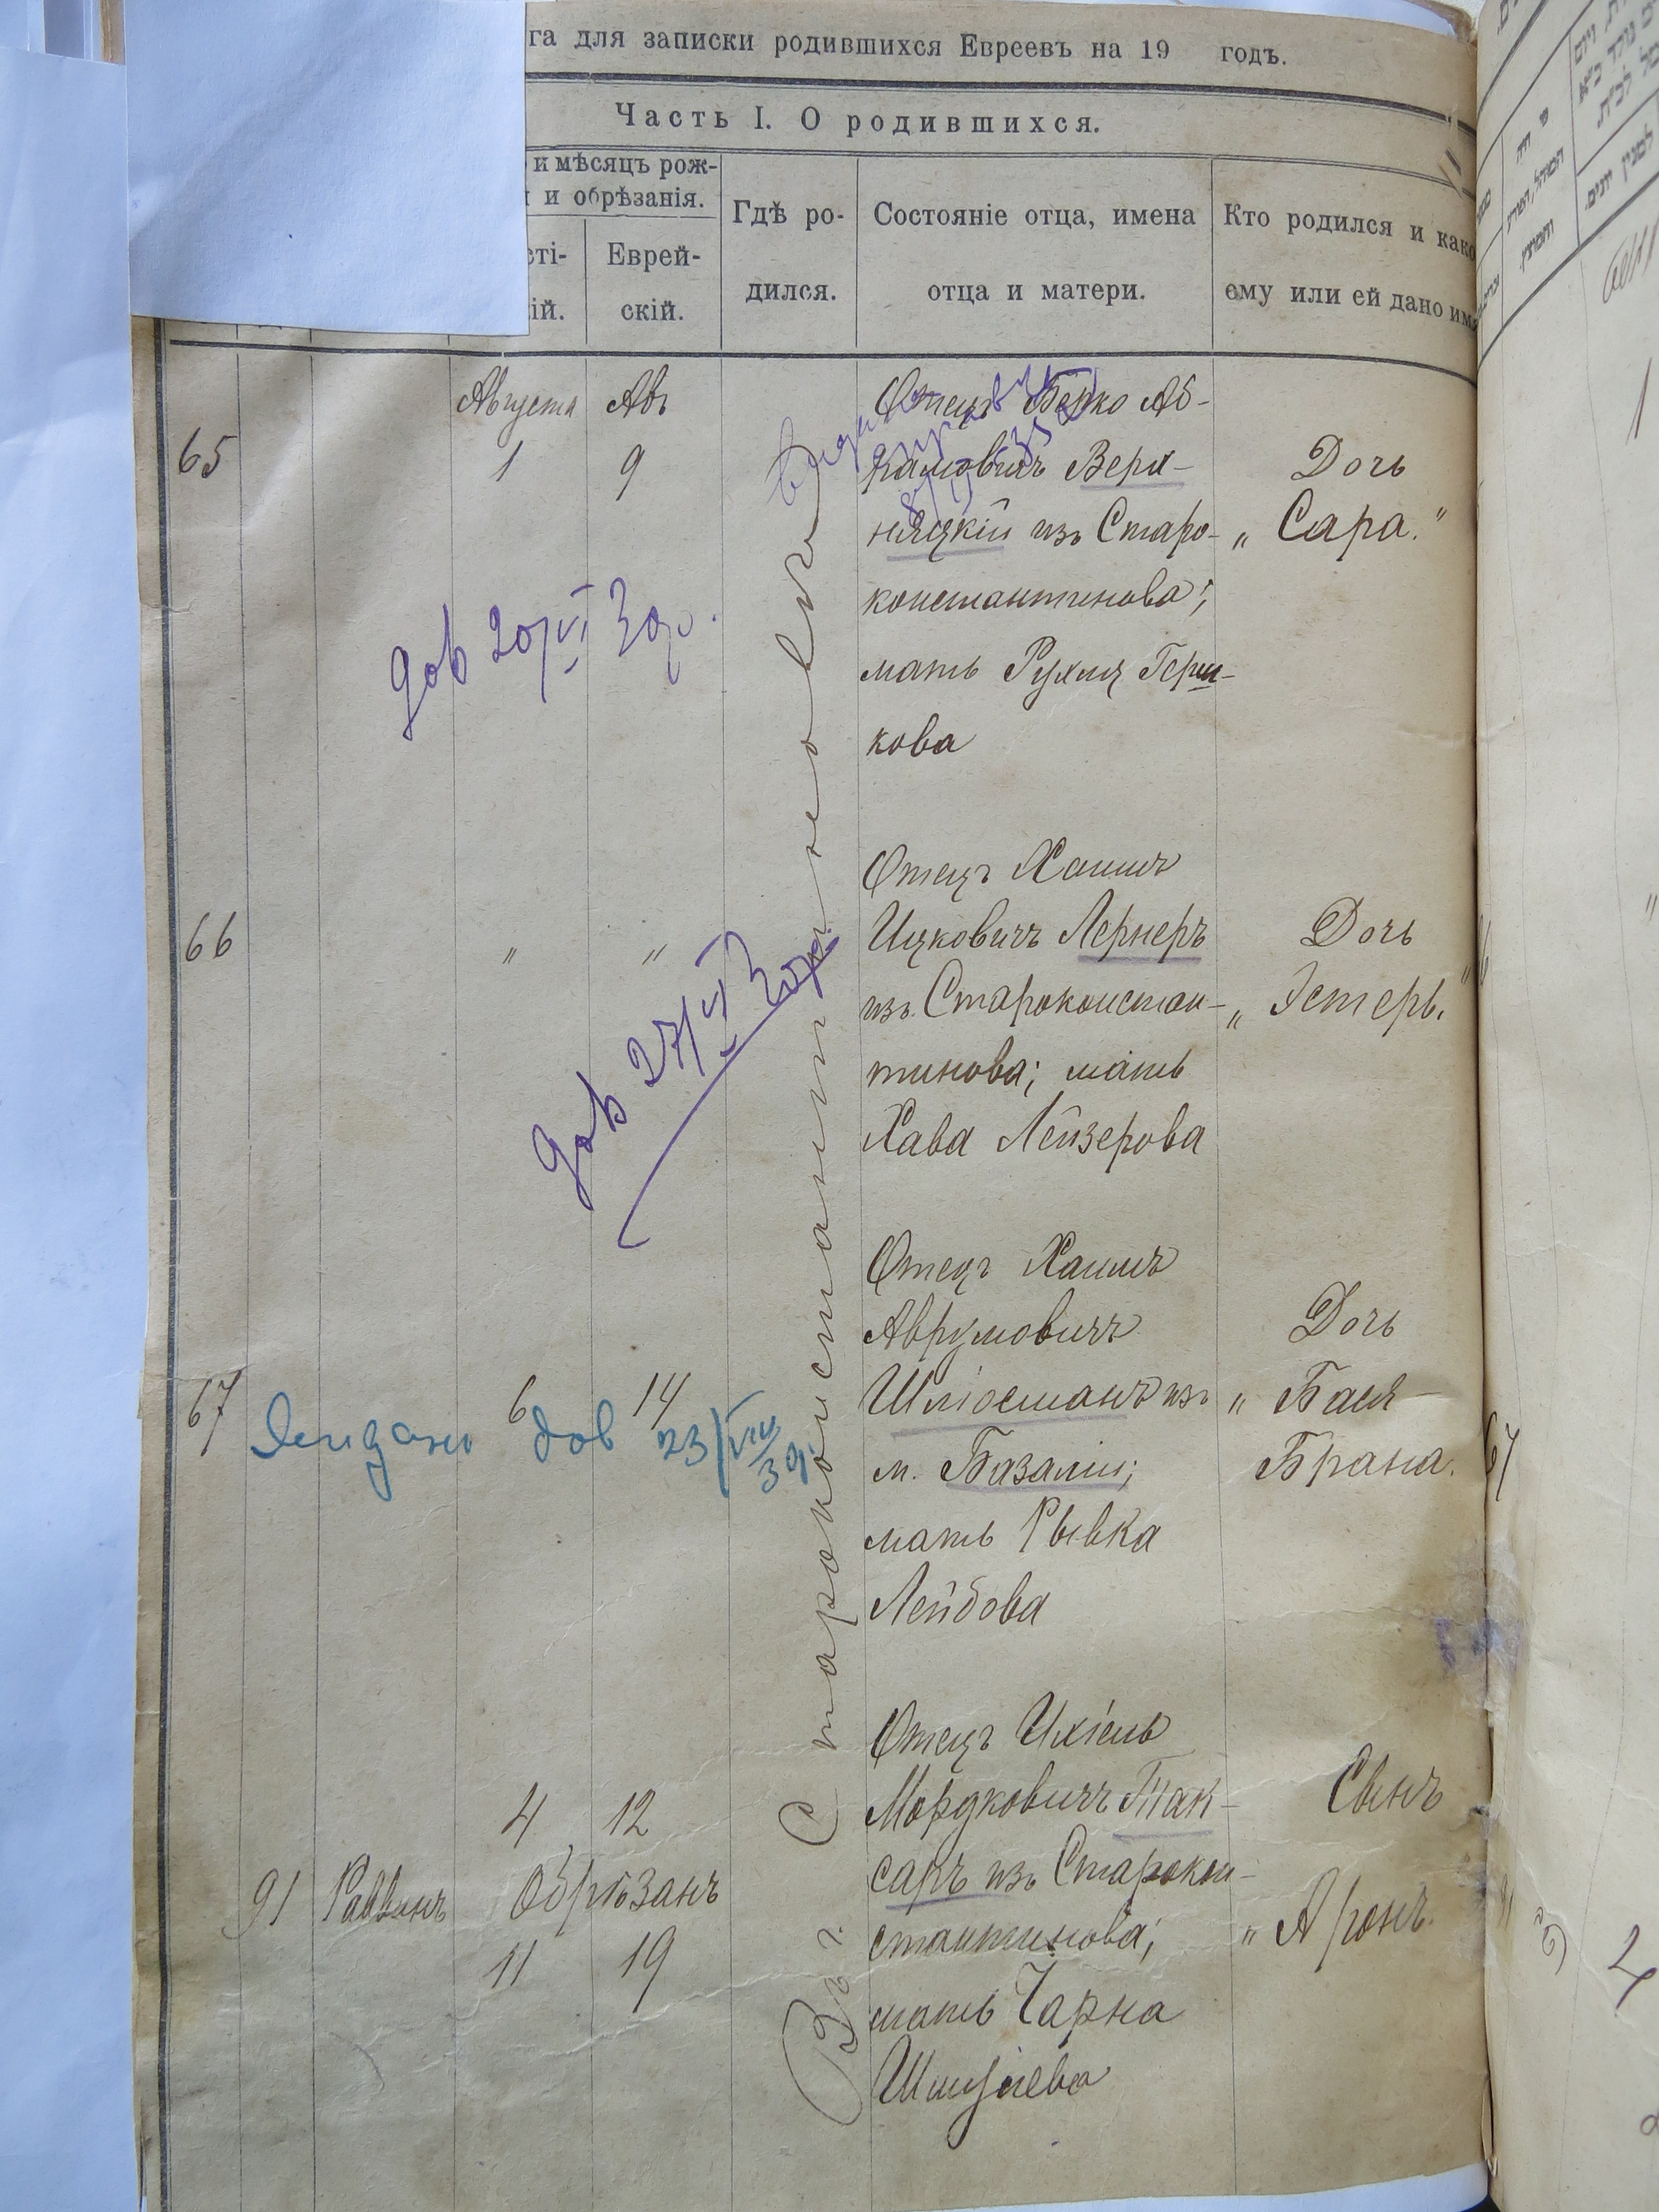 га для записки родившихся Евреевъ на 19 годъ.
Часть I. О родившихся.
и мѣсяцъ рож-
и обрѣзанія.
сті-
ій.
Еврей-
скій.
Гдѣ ро-
дился.
Состояніе отца, имена
отца и матери.
Кто родился и како
ему или ей дано имя
Августа Авъ
65 1 9
Отецъ Берко Аб-
рамовичъ Верх-
няцкій изъ Старо-
константинова;
мать Рухля Герш-
кова
Дочь
„Сара.“
дов 20/VI 30р.
66 " "
Отецъ Хаимъ
Ицковичъ Лернеръ
изъ Староконстан-
тинова; мать
Хава Лейзерова
Дочь
„Эстеръ.“
дов 27/VI 30р.
67 6 14
Отецъ Хаимъ
Аврумовичъ
Шлiосманъ изъ
м. Базаліи;
мать Рывка
Лейбова
Дочь
„Бася-
Брана.
дов 23/VIII 39
91 Раввинъ
4 12
Обрѣзанъ
11 19
Отецъ Ихіель
Мордковичъ Так-
саръ изъ Старокон-
стантинова;
мать Чарна
Шмулева
Сынъ
„Аронъ.
Въ г. Староконстантиновѣ